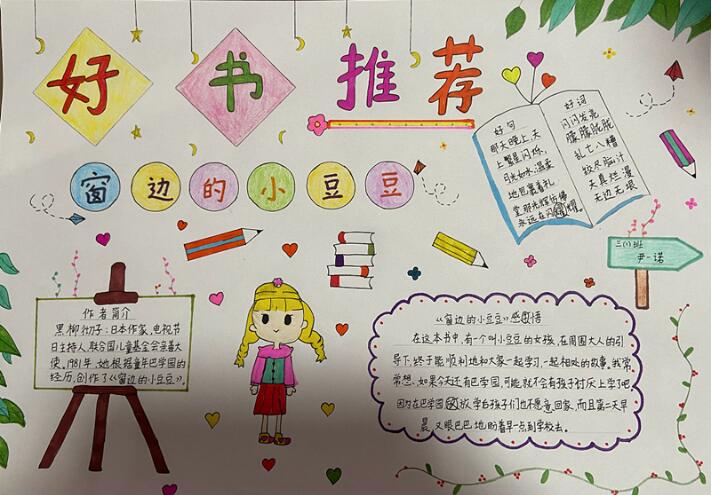 好书推荐
窗边的小豆豆
好句
那天晚上,天
上繁星闪烁,
月光如水,温柔
地包裹着礼
堂,那光辉仿佛
永远在闪耀。
好词
闪闪发亮
朦朦胧胧
乱七八糟
绞尽脑汁
天真烂漫
无边无垠
三(1)班
尹一诺
作者简介
黑柳彻子:日本作家,电视节
目主持人,联合国儿童基金会亲善大
使。1981年,她根据童年巴学园的
经历,创作了《窗边的小豆豆》
《窗边的小豆豆》感悟
在这本书中,有一个叫小豆豆的女孩,在周围大人的引
导下,终于能顺利地和大家一起学习,一起相处的故事。我常
常想,如果今天还有巴学园,可能就不会有孩子讨厌上学了吧。
因为在巴学园放学后孩子们也不愿意回家,而且第二天早
晨又眼巴巴地盼着早一点到学校去。